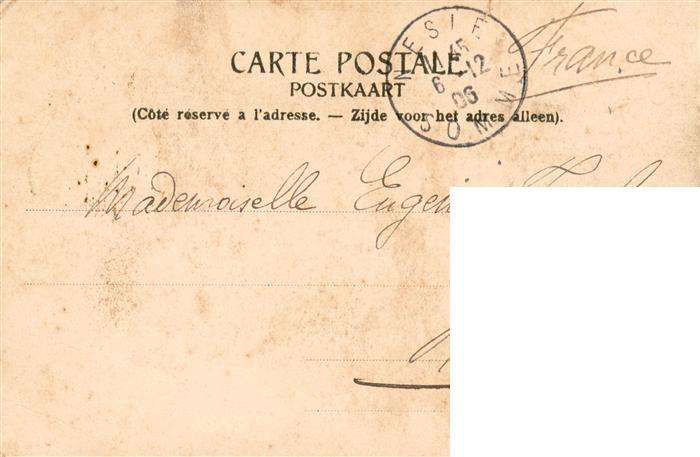 CARTE POSTALE
POSTKAART
(Côté réservé a l'adresse. — Zijde voor het adres alleen).
NESLE
6 -12
06
SOMME
France
Mademoiselle